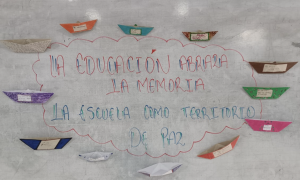 LA EDUCACIÓN ABRAZA
LA MEMORIA
LA ESCUELA COMO TERRITORIO
DE PAZ